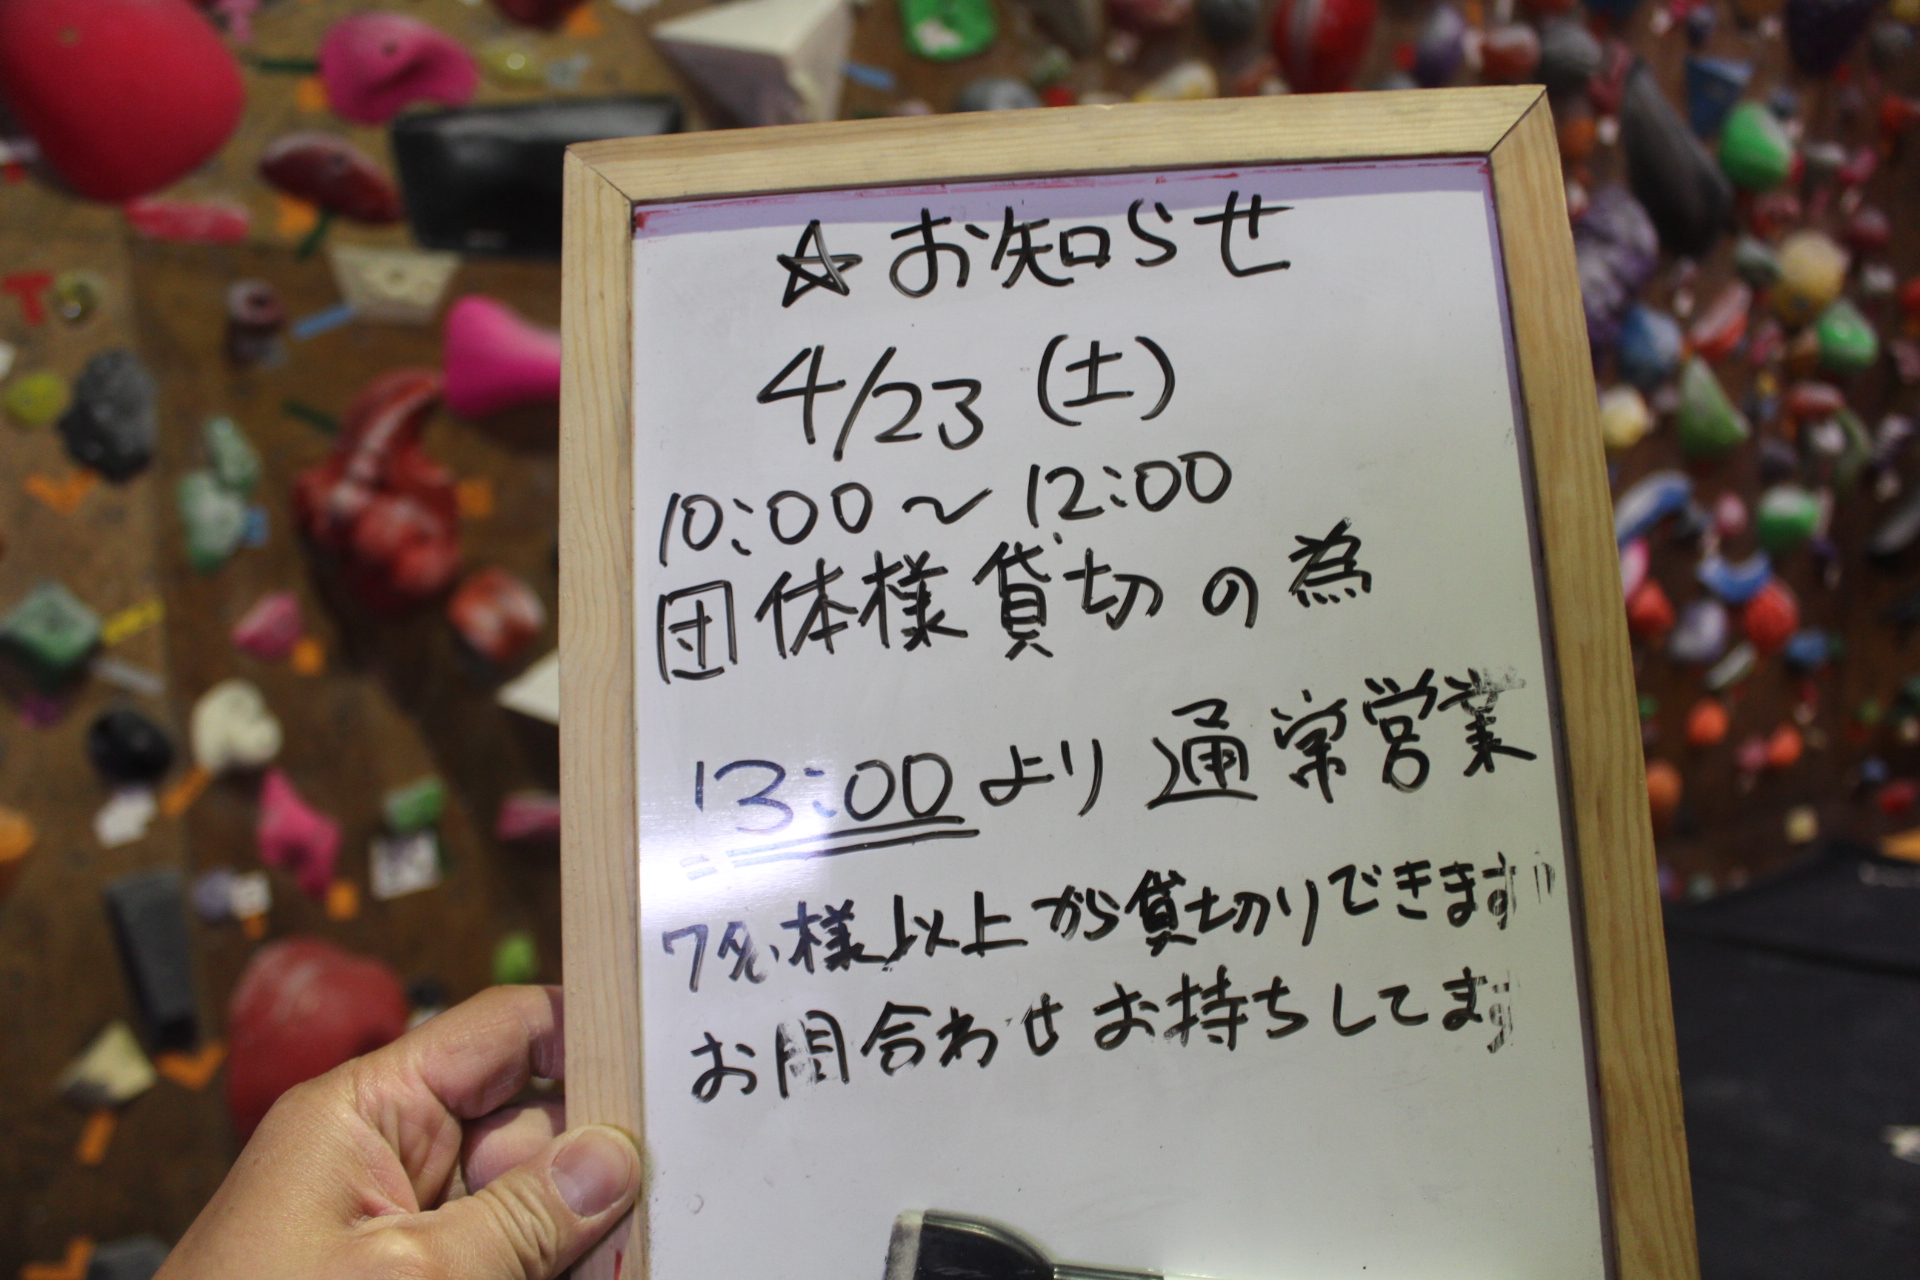 ☆お知らせ
4/23(土)
10:00〜12:00
団体様貸切の為
13:00より通常営業
7名様以上から貸切りできます
お問合わせお持ちしてます